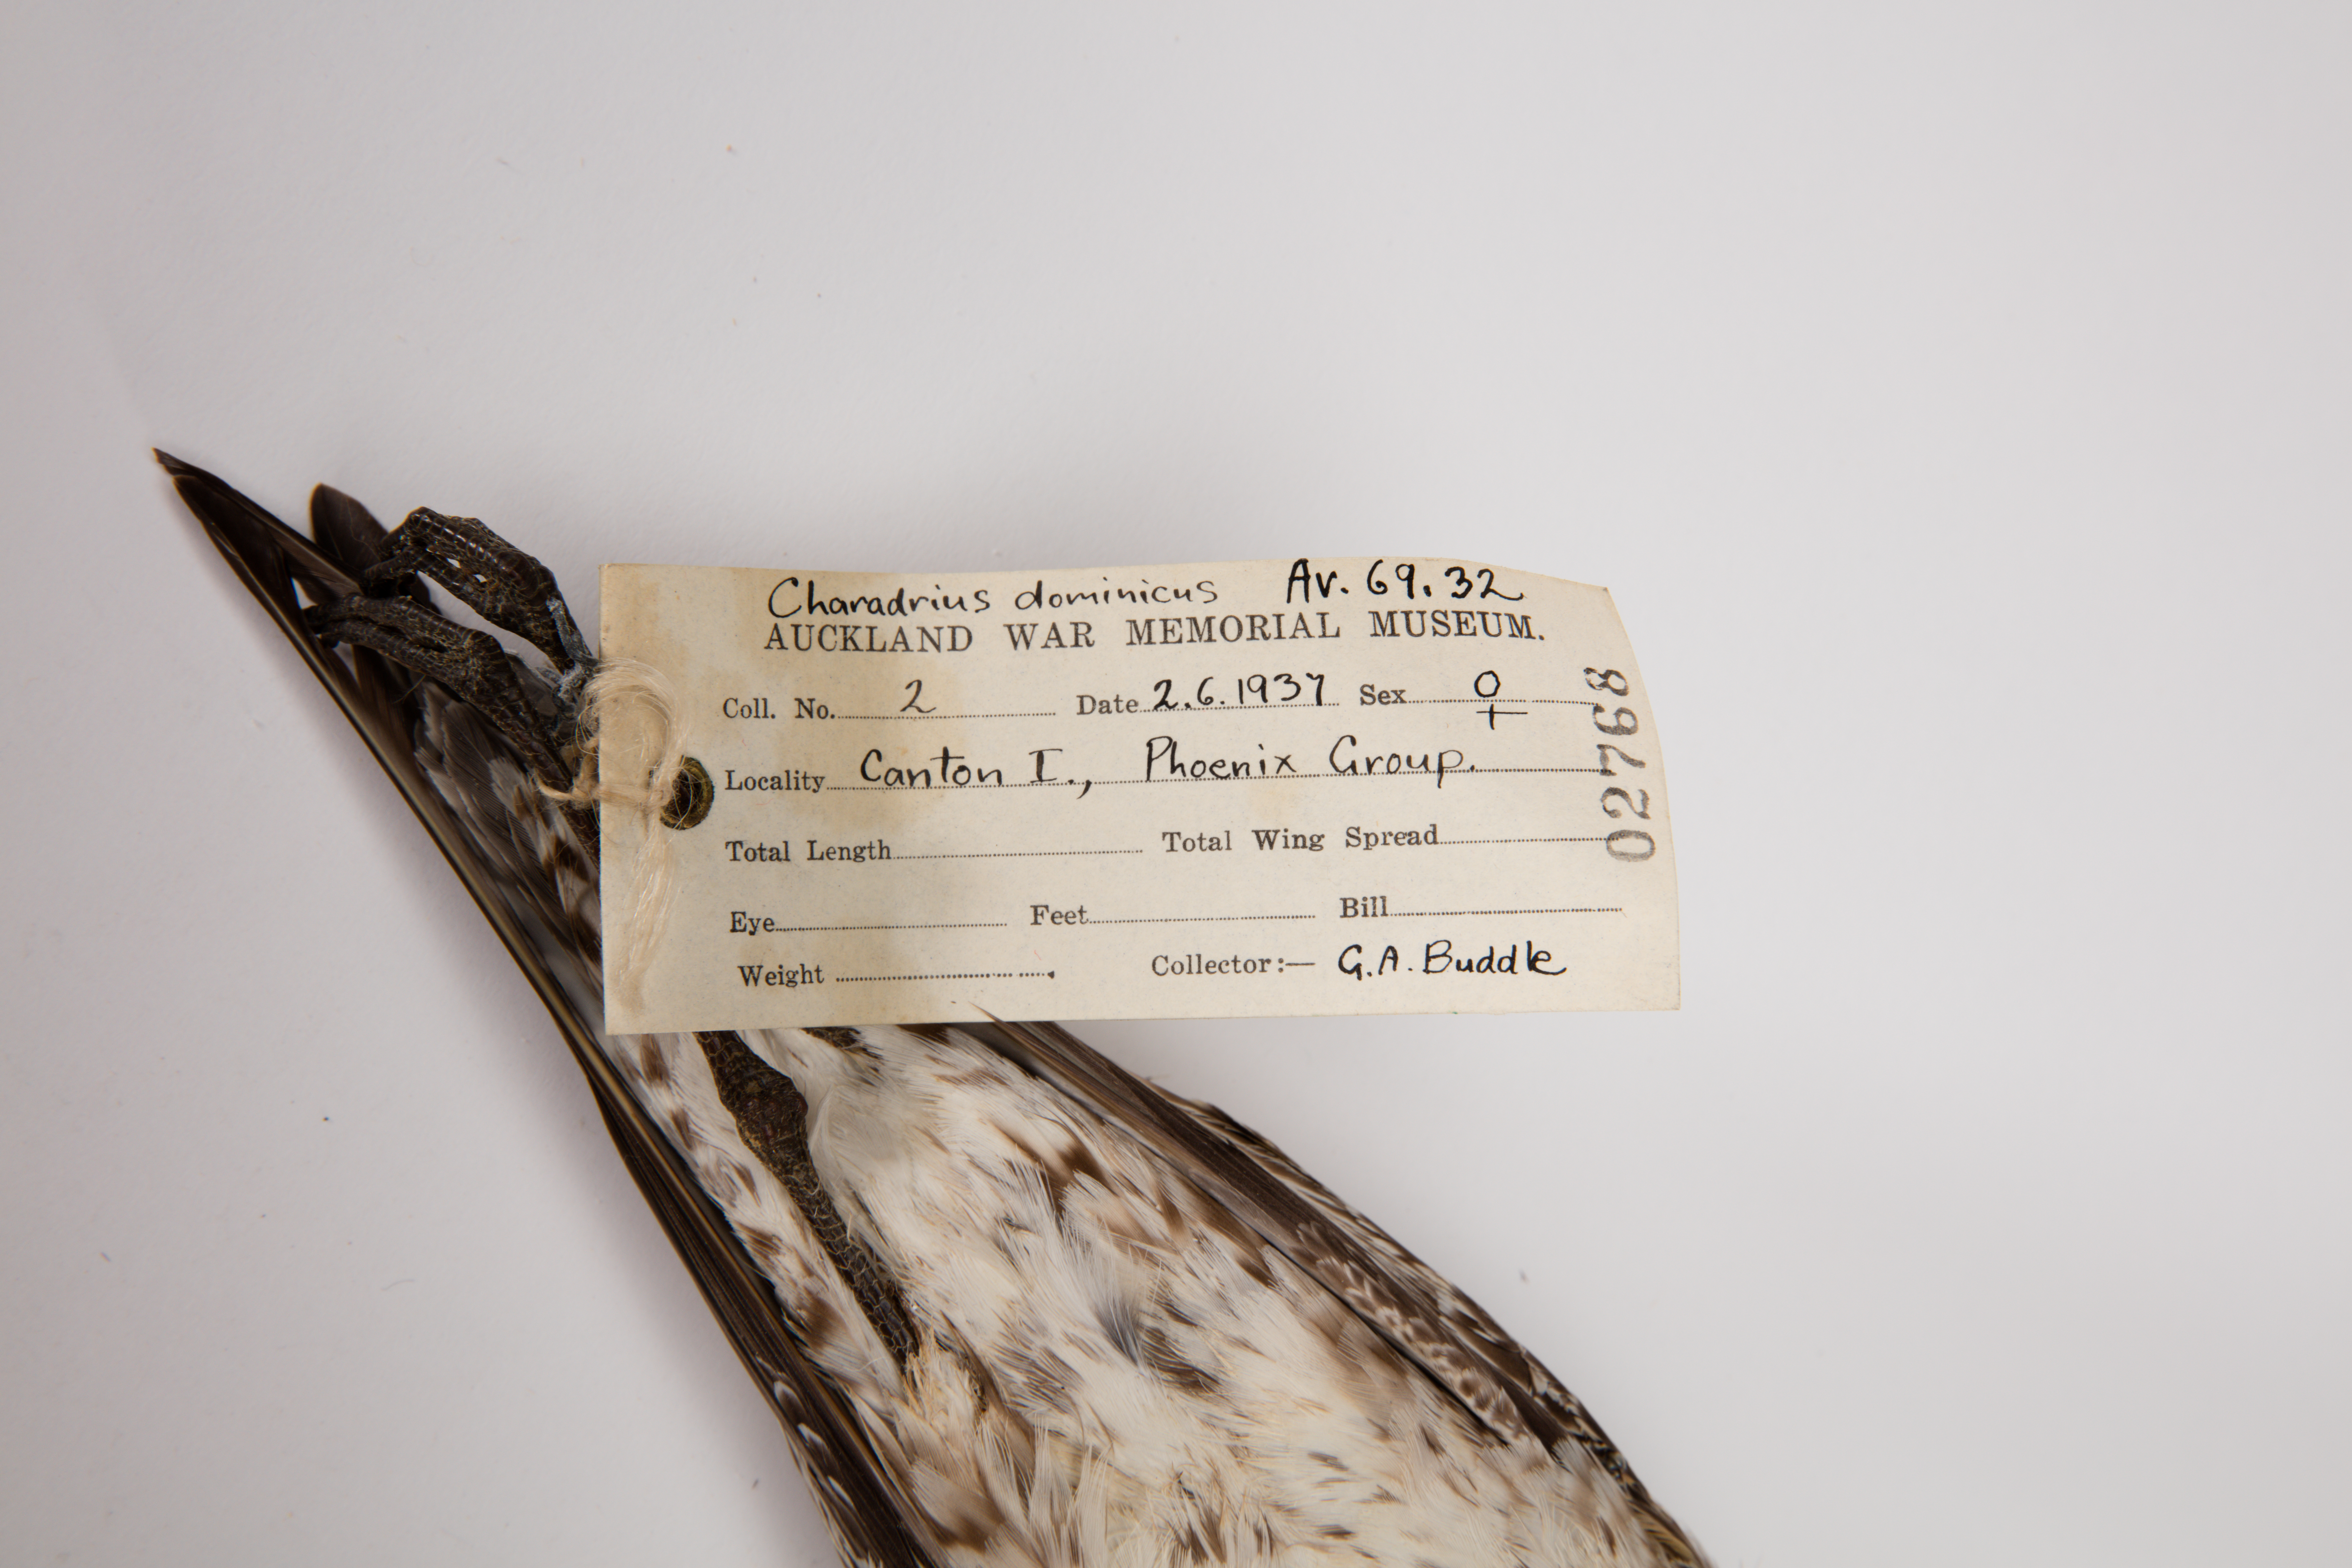 Charadrius dominicus Av. 69.32
AUCKLAND WAR MEMORIAL MUSEUM.
Coll. No. 2 Date 2.6.1937 Sex ♀
Locality Canton I., Phoenix Group.
Total Length Total Wing Spread
Eye Feet Bill
Weight Collector:— G.A. Buddle
02768